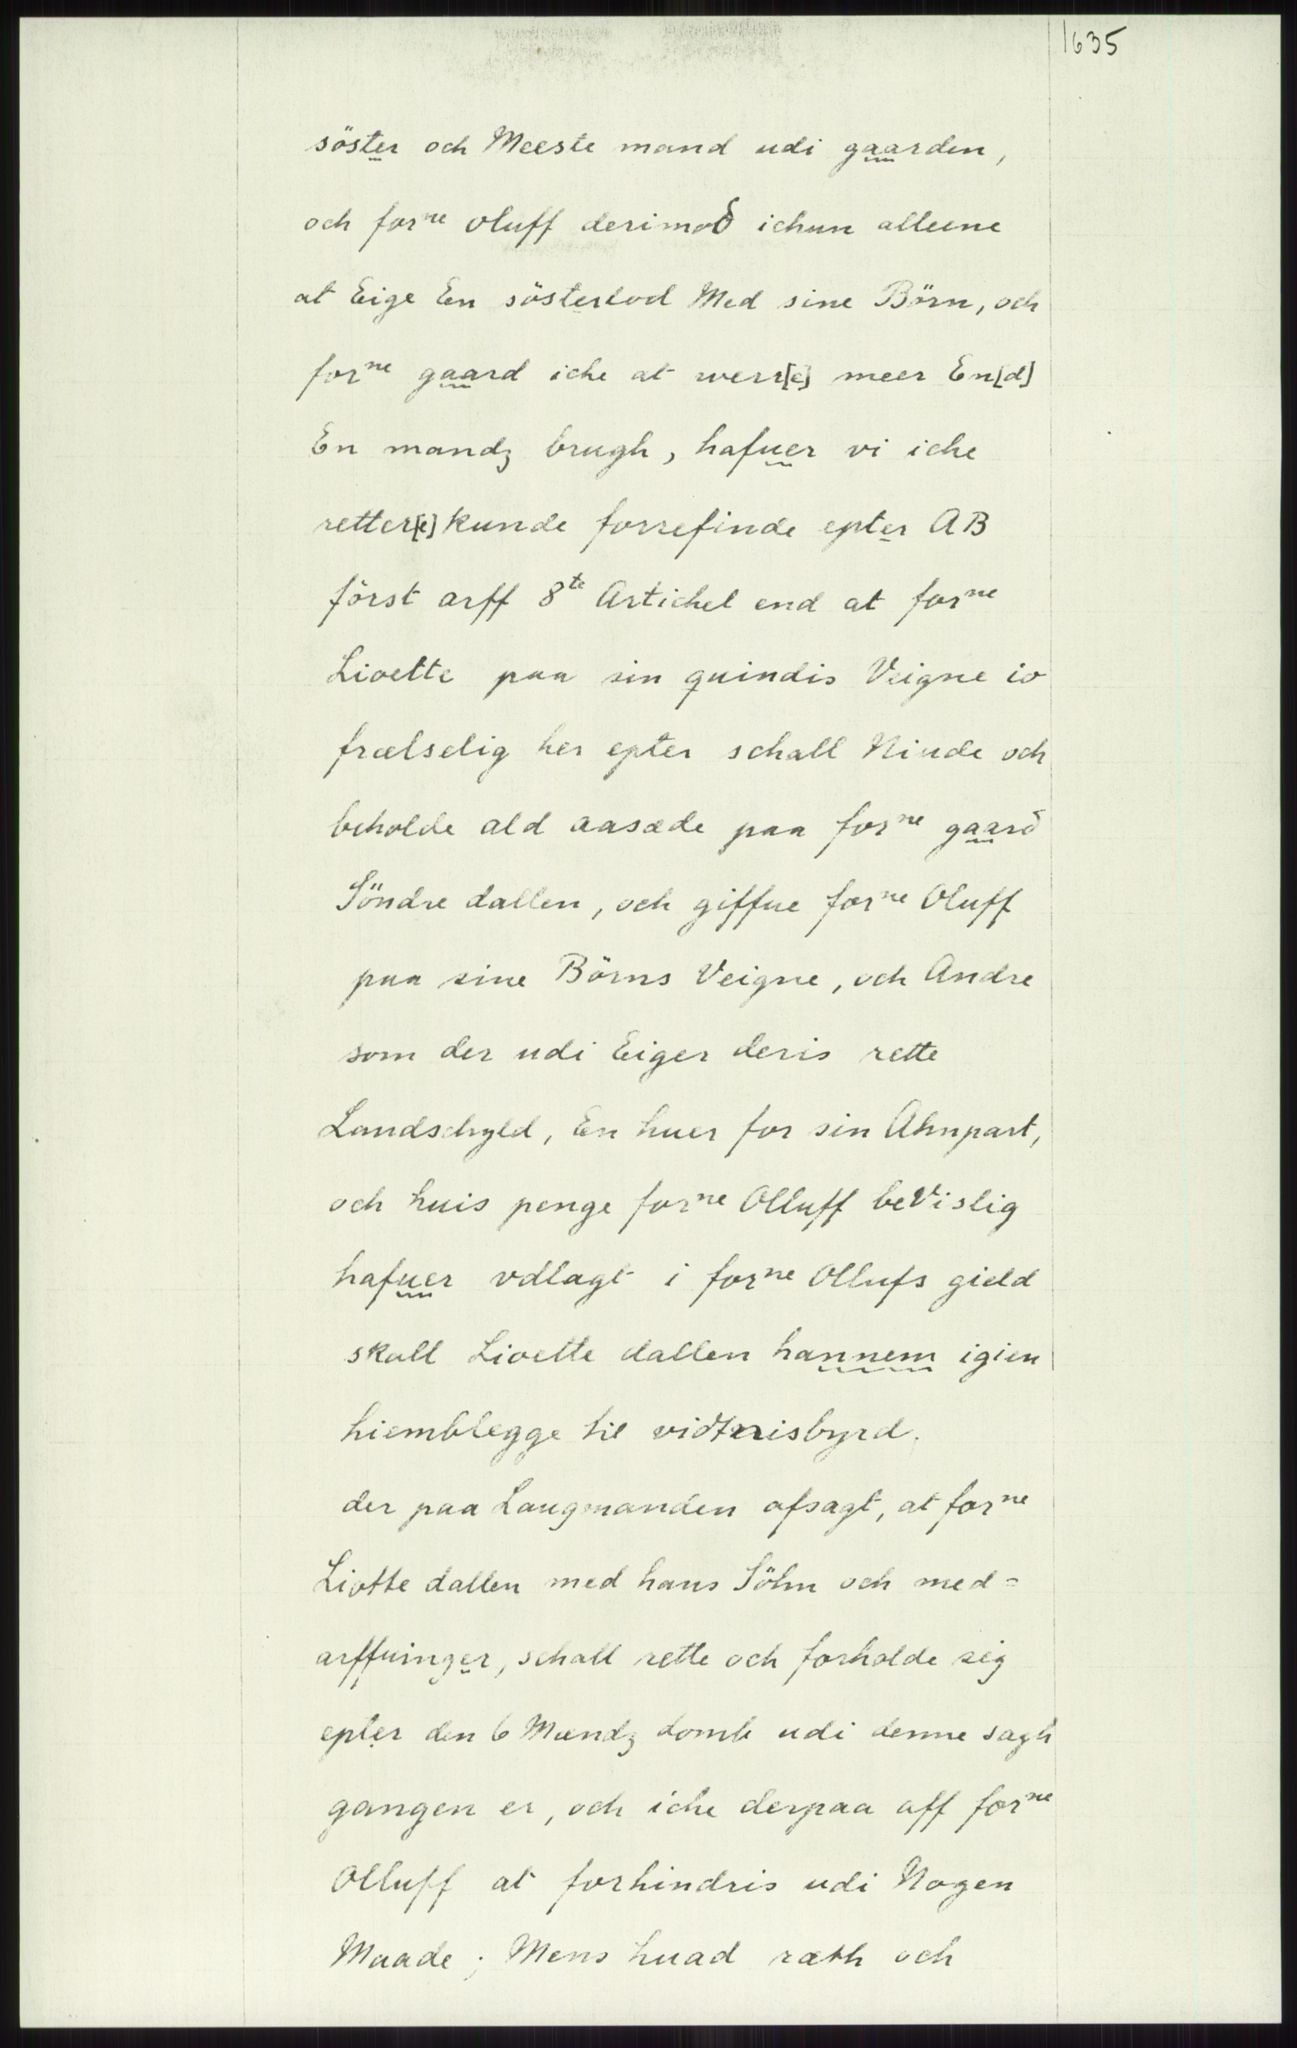 1635
söster och Meeste mand udi gaarden,
och forne oluff derimod ichun alleene
at Eige En sösterlod Med sine Börn, och
forne gaard iche at werr[e] meer En[d]
En mandz brugh, hafuer vi iche
retter[e] kunde forrefinde epter AB
först arff 8te Artichel end at forne
Livette paa sin quindis Veigne io
frælselig her epter schall Niude och
beholde ald aasæde paa forne gaard
Söndre dallen, och giffue forne Oluff
paa sine Börns Veigne, och Andre
som der udi Eiger deris rette
Landschyld, En huer for sin Ahnpart,
och huis penge forne Olluff beVislig
hafuer vdlagt i forne Ollufs gield
skall Livette dallen hannem igien
hiemblegge til vidtnisbyrd.
der paa Laugmanden afsagt, at forne
Liotte dallen med hans Söhn och med=
arffuinger, schall rette och forholde sig
epter den 6 Mændz domb udi denne sagh
gangen er, och iche derpaa aff forne
Olluff at forhindris udi Nogen
Maade; Mens huad ræth och